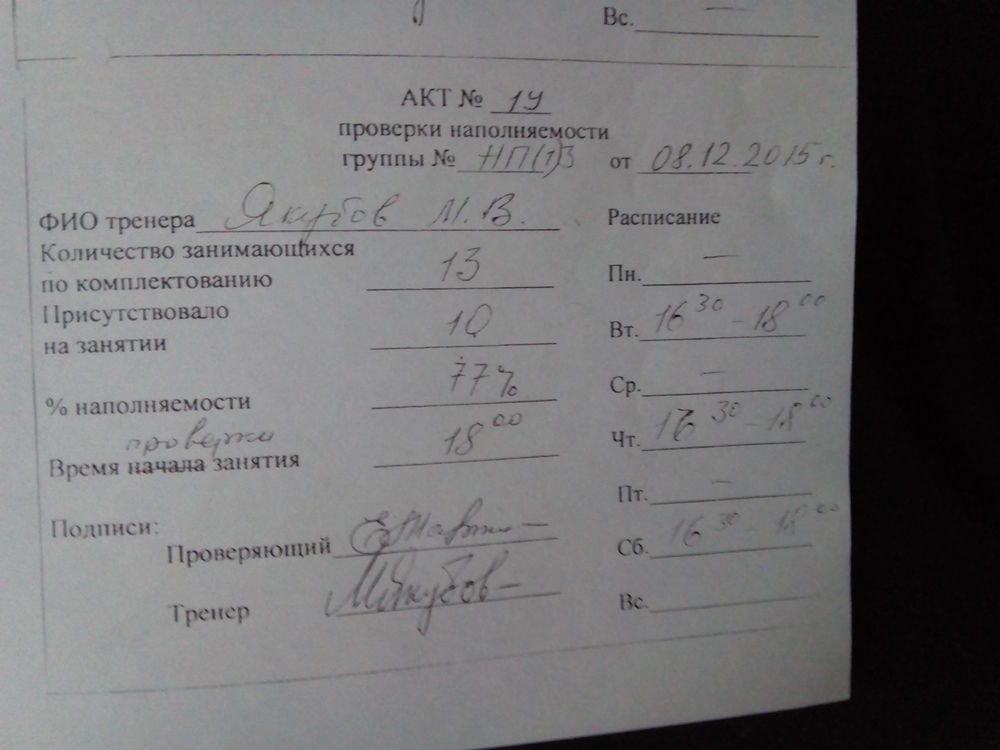 Вс. —
АКТ № 14
проверки наполняемости
группы № НП(1)3 от 08.12.2015 г.
ФИО тренера Якубов М.В. Расписание
Количество занимающихся
по комплектованию 13 Пн. —
Присутствовало
на занятии 10 Вт. 16 30 - 18 00
% наполняемости 77% Ср. —
проверки
Время начала занятия 18 00 Чт. 16 30 - 18 00
Пт. —
Подписи:
Проверяющий Сб. 16 30 - 18 00
Тренер МЯкубов Вс.